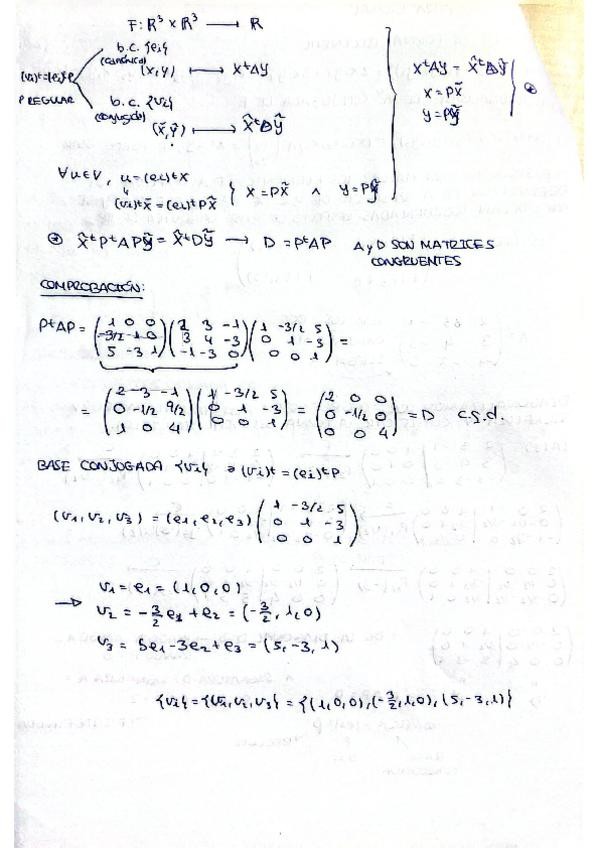 F: R³ × R³ ⟶ R
b.c. {ei}
(canónica)
(x,y) ⟼ XᵗAY
(vi)ᵗ=(ei)ᵗP
P REGULAR
b.c. {vi}
(conjugada)
(x̃,ỹ) ⟼ X̃ᵗDỸ
XᵗAY = X̃ᵗDỸ
X = PX̃
Y = PỸ
⊛
∀u∈V, u=(ei)ᵗX
(vi)ᵗX̃ = (ei)ᵗPX̃ } X = PX̃ ∧ Y = PỸ
⊛ X̃ᵗPᵗAPỸ = X̃ᵗDỸ ⟶ D = PᵗAP A y D SON MATRICES
CONGRUENTES
COMPROBACIÓN:
PᵗAP = (1 0 0; -3/2 -1 0; 5 -3 1) (2 3 -1; 3 4 -3; -1 -3 0) (1 -3/2 5; 0 1 -3; 0 0 1) =
= (2 -3 -1; 0 -1/2 9/2; 1 0 4) (1 -3/2 5; 0 1 -3; 0 0 1) = (2 0 0; 0 -1/2 0; 0 0 4) = D c.q.d.
BASE CONJOGADA {vi} ⇒ (vi)ᵗ = (ei)ᵗP
(v1, v2, v3) = (e1, e2, e3) (1 -3/2 5; 0 1 -3; 0 0 1)
v1 = e1 = (1,0,0)
→ v2 = -3/2 e1 + e2 = (-3/2, 1, 0)
v3 = 5e1 - 3e2 + e3 = (5, -3, 1)
{vi} = {v1, v2, v3} = {(1,0,0), (-3/2,1,0), (5,-3,1)}